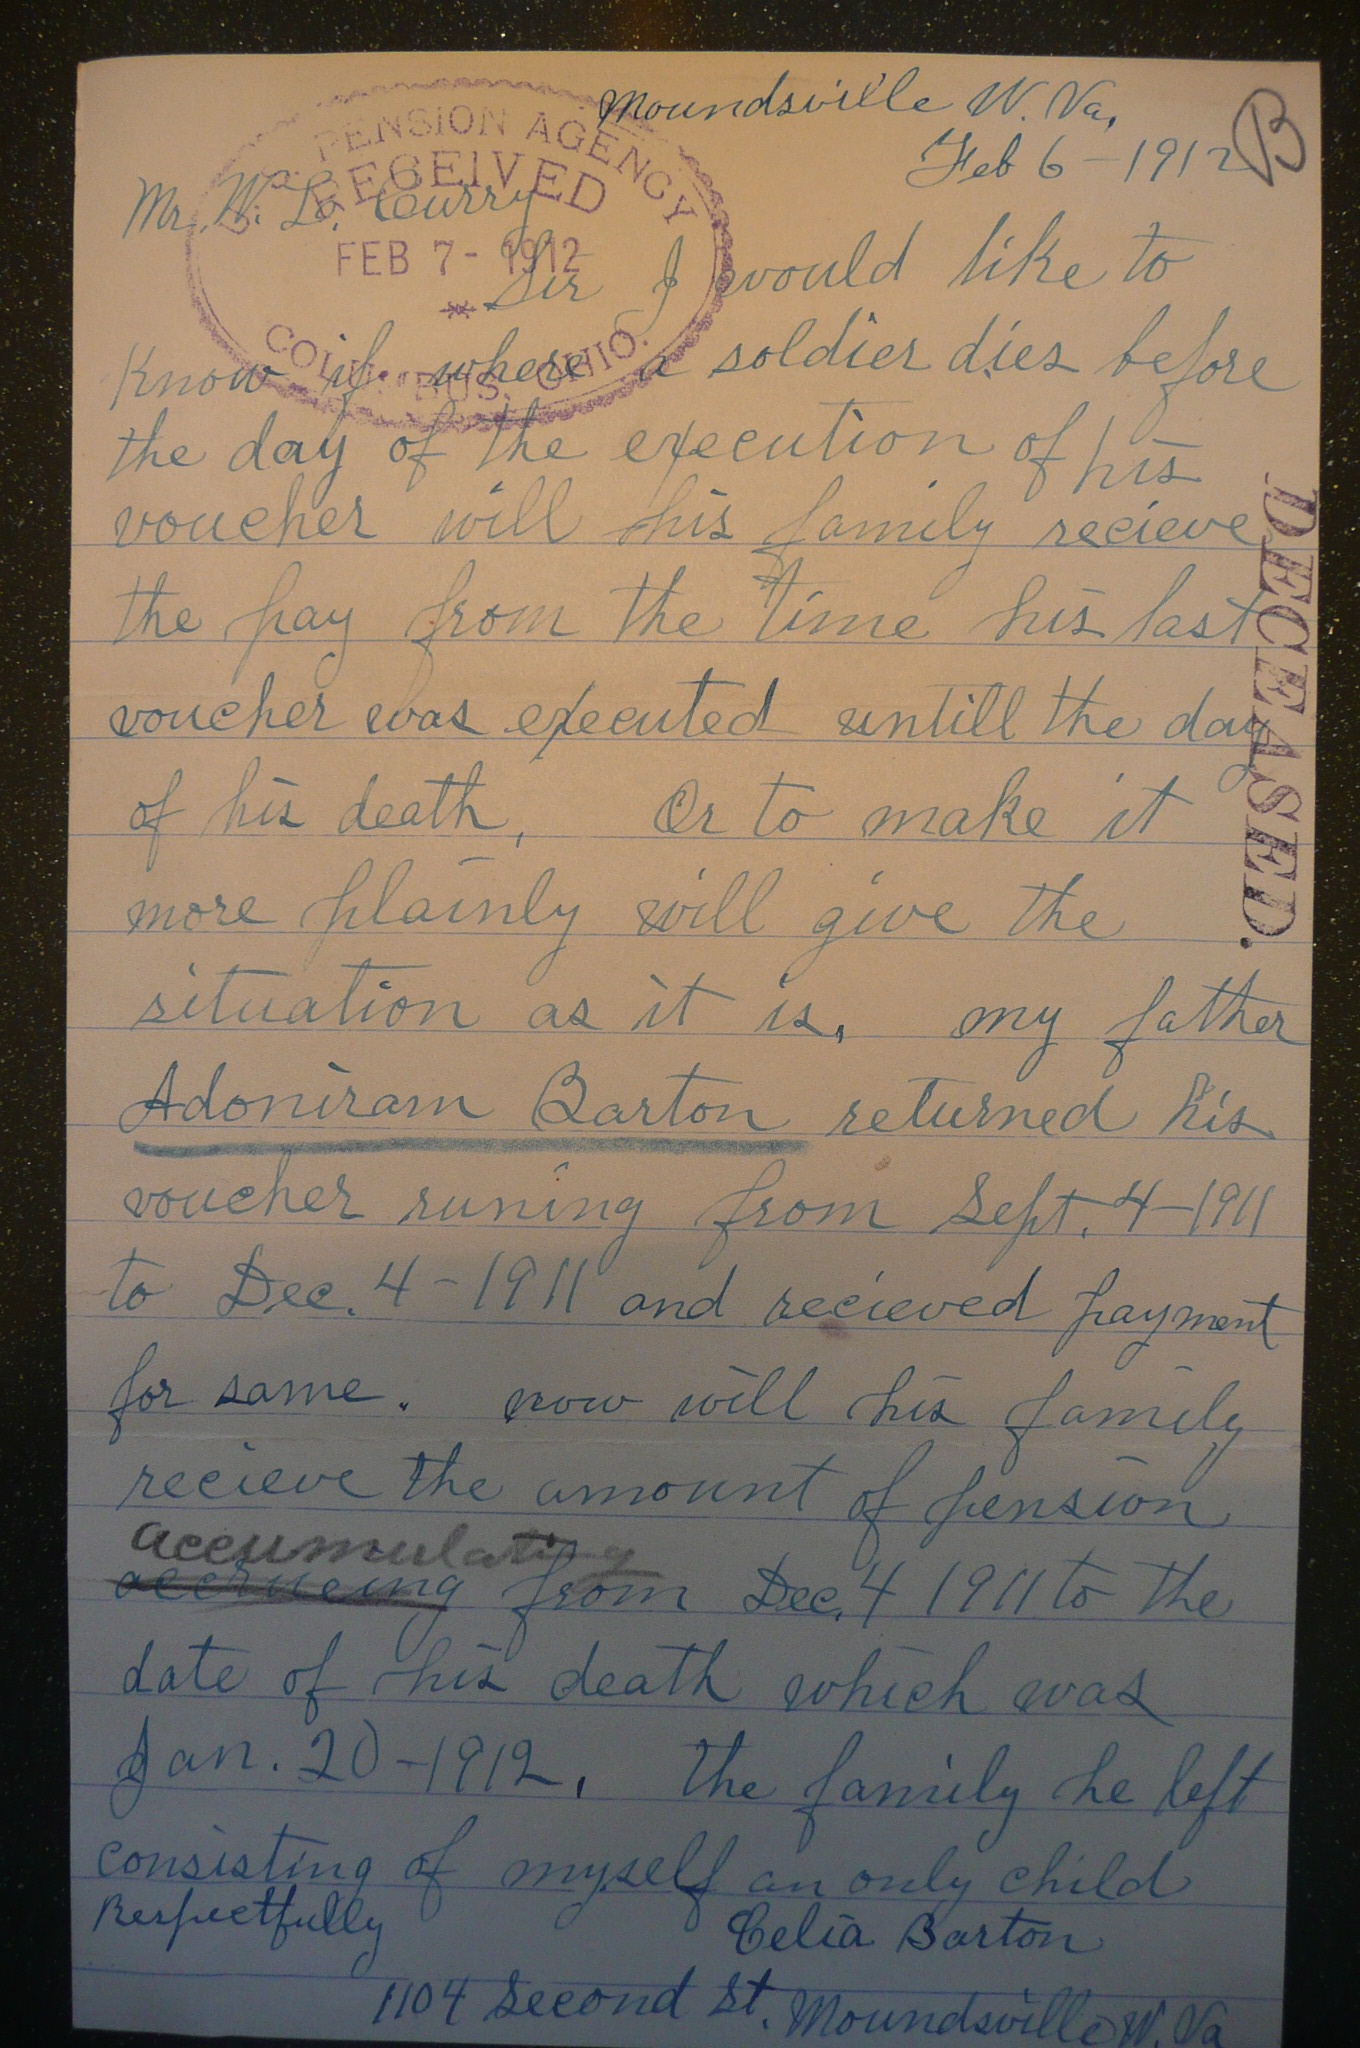 Moundsville W. Va,
Feb 6-1912
B
U.S. PENSION AGENCY
RECEIVED
FEB 7- 1912
COLUMBUS, OHIO.
Mr. W. L. Curry
Sir I would like to
Know if where a soldier dies before
the day of the execution of his
voucher will his family recieve
the pay from the time his last
voucher was executed untill the day
of his death, Or to make it
more plainly will give the
situation as it is, my father
Adoniram Barton returned his
voucher runing from Sept. 4-1911
to Dec. 4-1911 and recieved payment
for same. now will his family
recieve the amount of pension
accumulating
accrueing from Dec. 4 1911 to the
date of his death which was
Jan. 20-1912. the family he left
consisting of myself an only child
Respectfully Celia Barton
1104 Second St. Moundsville W. Va
DECEASED.